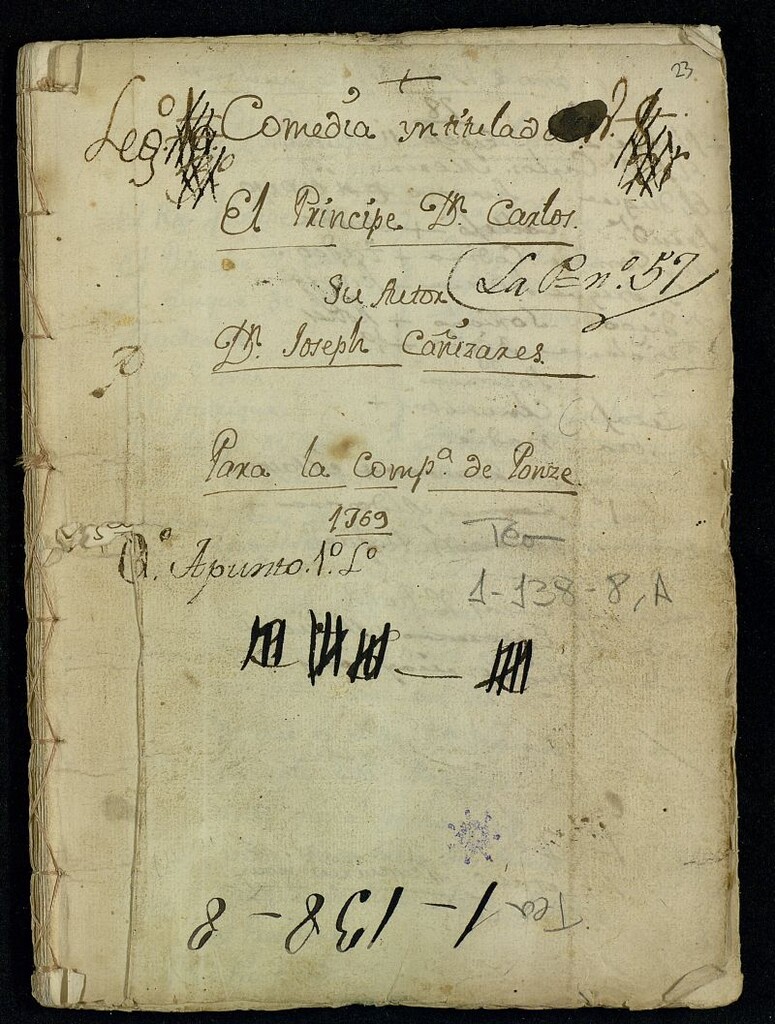 23
+
Leg.º
Comedia yntitulada
El Principe Dn. Carlos.
Su Autor (La Pe nº. 57
Dn. Joseph Cañizares.
Para la Compª. de Ponze
1769
Apunto. 1º. Lº
Tea
1-138-8, A
Tea 1-138-8